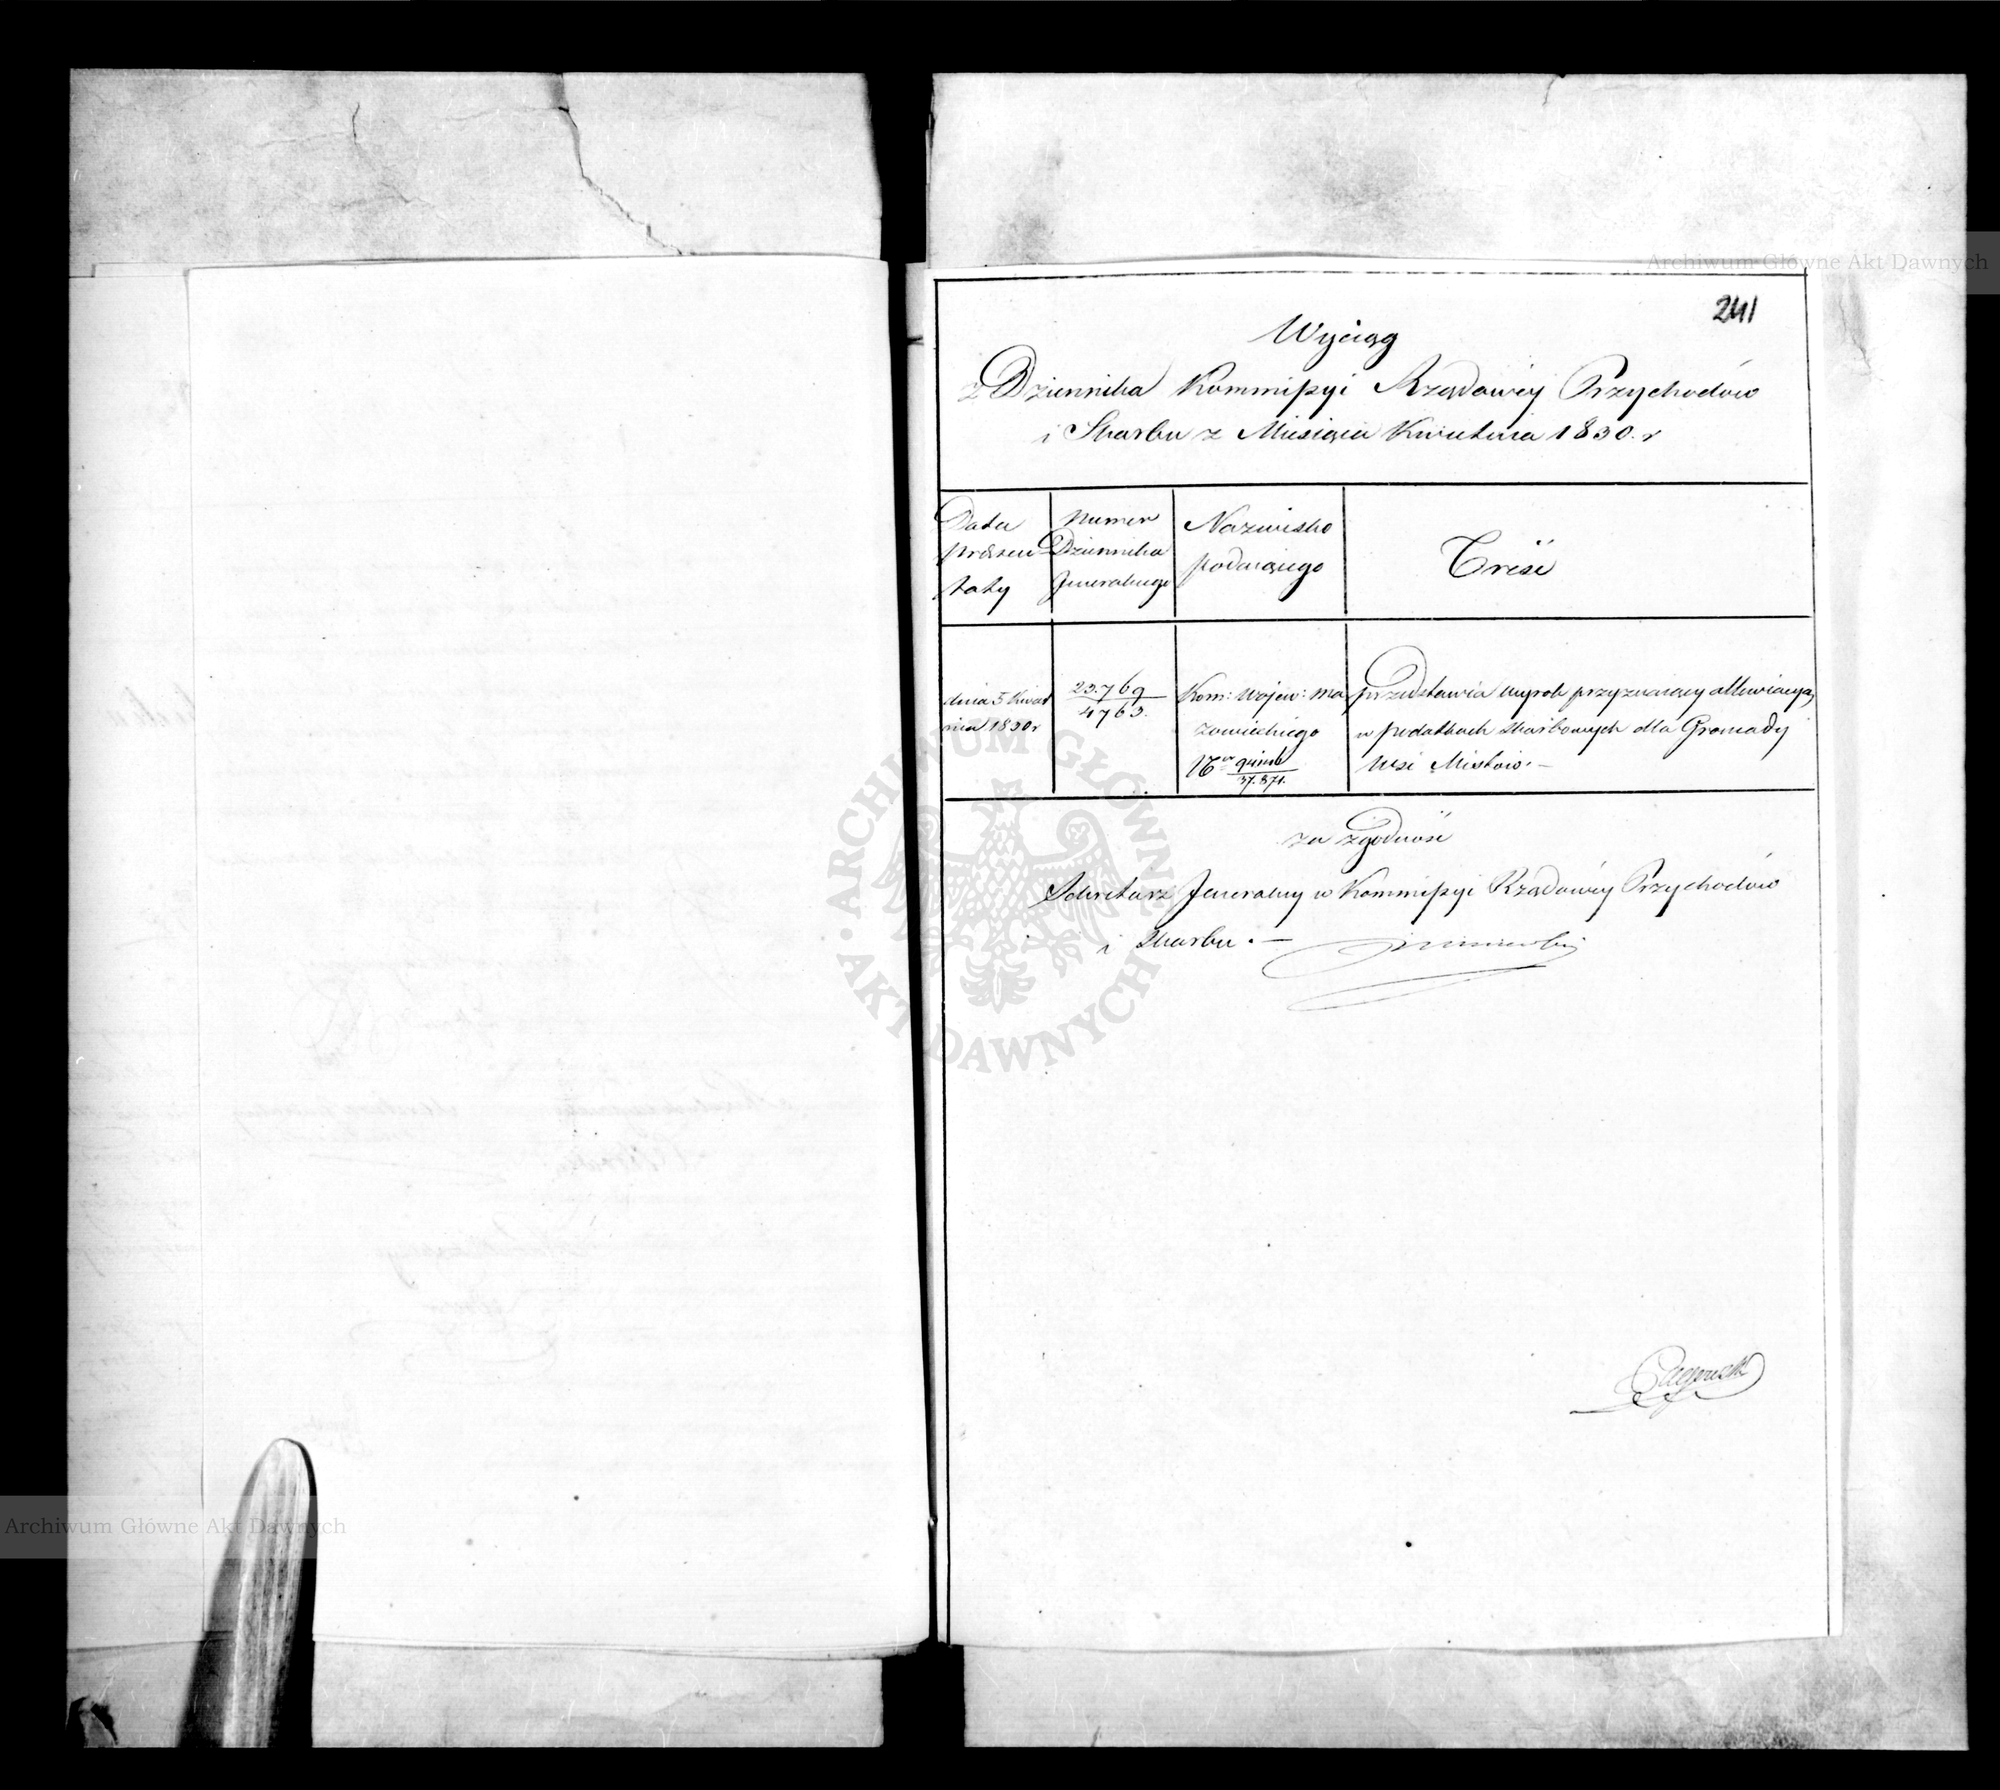 241
Wyciąg
z Dziennika Kommissyi Rządowéy Przychodów
i Skarbu z Miesiąca Kwietnia 1830. r
Data
prezen
taty
Numer
Dziennika
Jeneralnego
Nazwisko
podaiącego
Treść
dnia 5 Kwiet
nia 1830 r
23.769
4763.
Kom: Wojew: Ma
zowieckiego
Nor
37.871.
przedstawia wyrok przyznaiący allewiacyą
w podatkach skarbowych dla Gromady
Wsi Mistów. —
za zgodność
Sekretarz Jeneralny w Kommissyi Rządowéy Przychodów
i Skarbu. —
Archiwum Główne Akt Dawnych
ARCHIWUM GŁÓWNE AKT DAWNYCH
Archiwum Główne Akt Dawnych